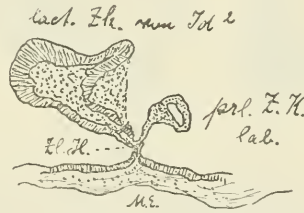 lact. Zk. von Jd 2
prl. Z. K.
lab.
Zl. H.
M.E.